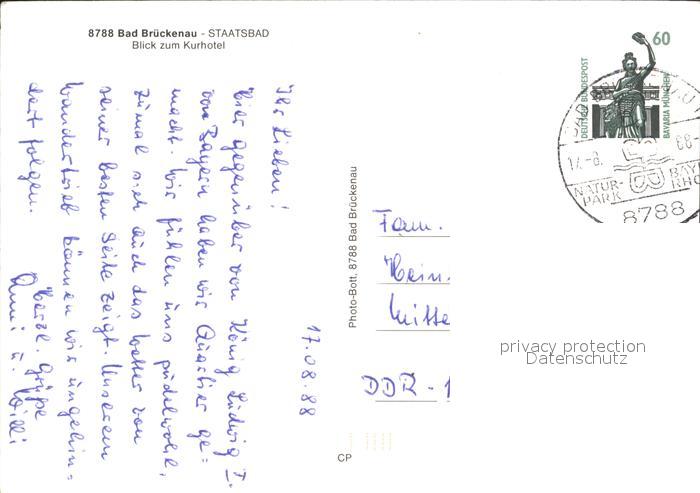 8788 Bad Brückenau - STAATSBAD
Blick zum Kurhotel
17.08.88
Ihr Lieben!
Hier gegenüber von König Ludwig I.
von Bayern haben wir Quartier ge=
macht. Wir fühlen uns pudelwohl,
zumal sich auch das Wetter von
seiner besten Seite zeigt. Unserem
Wandertrieb können wir ungehin=
dert folgen.
Herzl. Grüße
Anni u. Willi
Photo-Bott, 8788 Bad Brückenau
CP
60
DEUTSCHE BUNDESPOST
BAVARIA MÜNCHEN
17.-8.
88-
NATUR-
PARK
BAY
RHÖ
8788
Fam.
Hein
Mitte
DDR - 1
privacy protection
Datenschutz